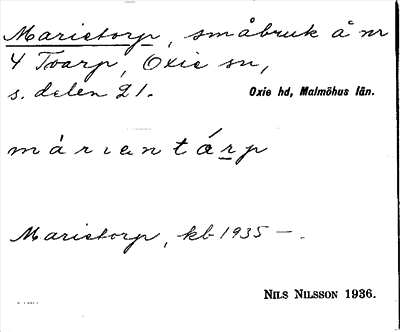 Marietorp, småbruk å nr
4 Tvarp, Oxie sn,
s. delen 21.
Oxie hd, Malmöhus län.
Marietorp, kb 1935 – .
NILS NILSSON 1936.